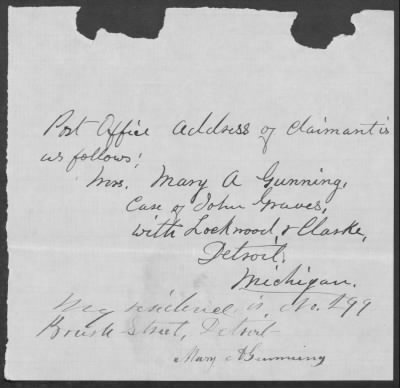 Post Office Address of Claimant is
as follows:
Mrs. Mary A Gunning,
Care of John Graves,
with Lockwood & Clarke,
Detroit
Michigan.
My residence is, No. 299
Brush Street, Detroit
Mary A Gunning